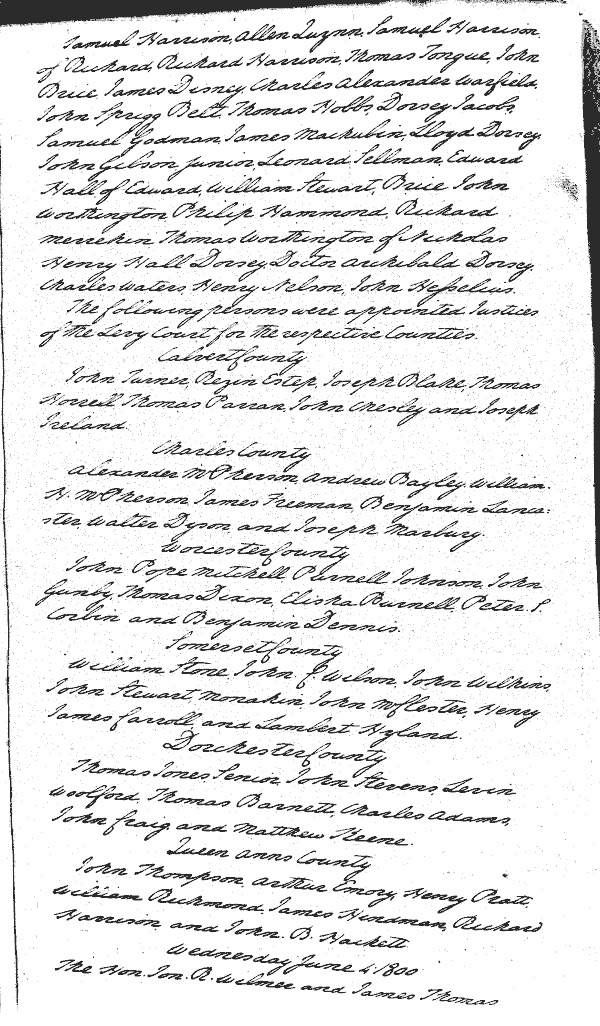 Samuel Harrison, Allen Quynn, Samuel Harrison,
of Richard, Richard Harrison, Thomas Tongue, John
Brice, James Disney, Charles Alexander Warfield,
John Sprigg Belt, Thomas Hobbs, Dorsey Jacobs,
Samuel Godman, James Mackubin, Lloyd Dorsey,
John Gibson junior, Leonard Sellman, Edward
Hall of Edward, William Stewart, Brice John
Worthington Philip Hammond, Richard
Merrekin Thomas Worthington of Nicholas
Henry Hall Dorsey Doctor Archibald Dorsey,
Charles Waters, Henry Nelson, John Hesselius.
The following persons were appointed Justices
of the Levy Court for the respective Counties.
Calvert County
John Turner, Rezin Estep, Joseph Blake, Thomas
Norrell Thomas Parran, John Chesley and Joseph
Ireland.
Charles County
Alexander McPherson, Andrew Bayley, William.
H. McPherson, James Freeman, Benjamin Lanca:
ster, Walter Dyson and Joseph Marbury.
Worcester County
John Pope Mitchell, Purnell Johnson, John
Gunby, Thomas Dixon, Elisha Purnell, Peter. S.
Corbin and Benjamin Dennis.
Somerset County
William Stone, John. C. Wilson, John Wilkins,
John Stewart, Monakin, John McClester, Henry
James Carroll, and Lambert Hyland.
Dorchester County
Thomas Jones Senior, John Stevens, Levin
Woolford, Thomas Barnett, Charles Adams,
John Craig and Matthew Keene.
Queen Anns County
John Thompson, Arthur Emory, Henry Pratt,
William Richmond, James Hindman, Richard
Harrison, and John. B. Hackett
Wednesday June 4. 1800
The Hon. Jon. R. Wilmer and James Thomas